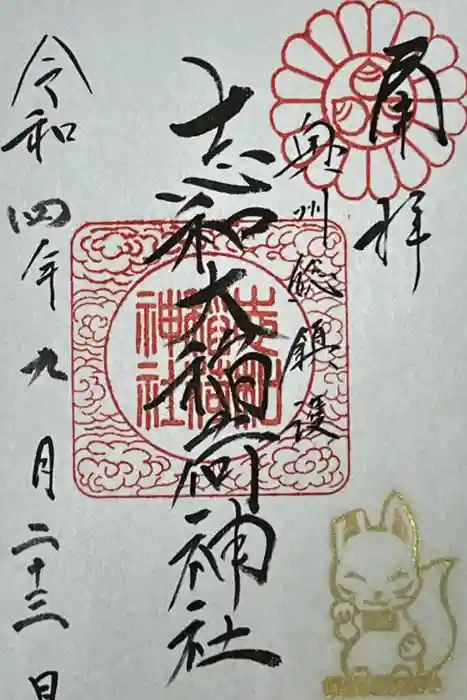 奉拝
奥州総鎮護
志和大稲荷神社
志和
稲荷
神社
令和四年九月二十三日